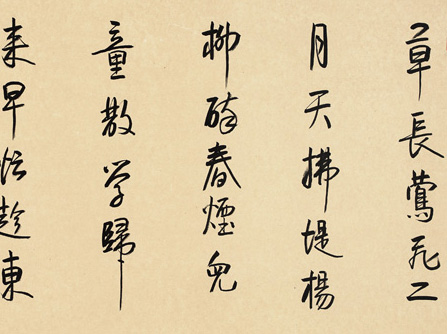 草長鶯飛二
月天拂堤楊
柳醉春煙兒
童散学歸
来早忙趁東